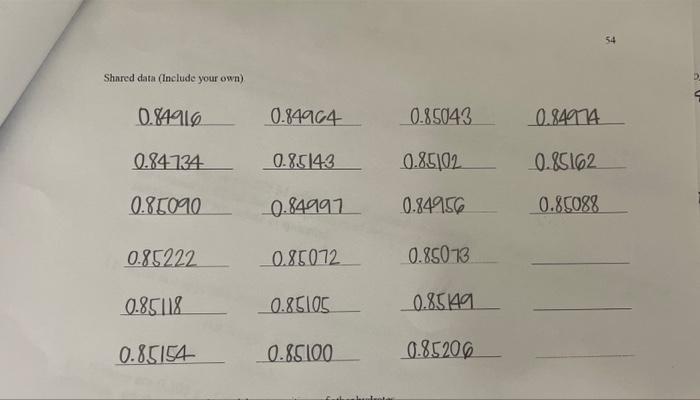 54
Shared data (Include your own)
0.84916 0.84964 0.85043 0.84974
0.84734 0.85143 0.85102 0.85162
0.85090 0.84997 0.84956 0.85088
0.85222 0.85072 0.85073
0.85118 0.85105 0.85149
0.85154 0.85100 0.85206